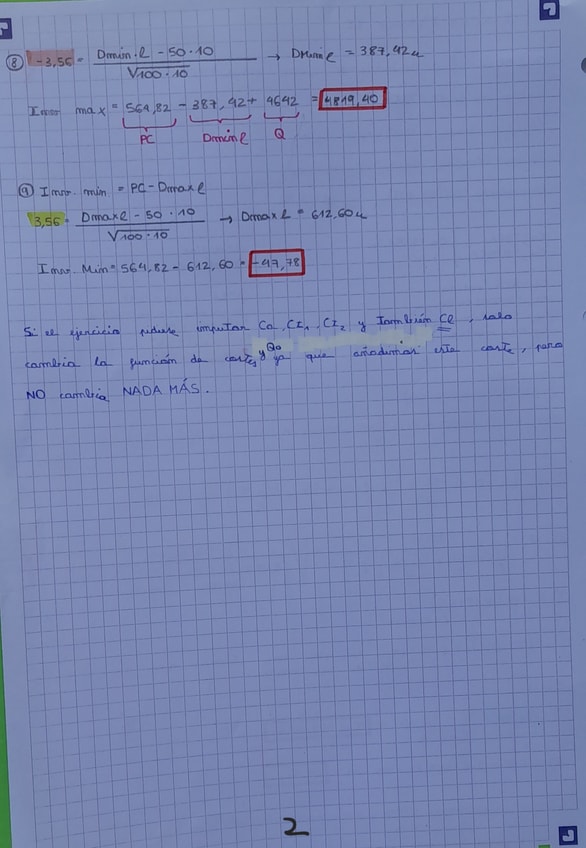 ⑧ -3,56 = (Dmin·l - 50·10) / √100·10 → Dmin l = 387,42u
Imax max = 564,82 - 387,42 + 4642 = 4819,40
PC Dmin l Q
⑨ Imax. mín = PC - Dmax l
3,56 = (Dmax l - 50·10) / √100·10 → Dmax l = 612,60u
Imax. Mín = 564,82 - 612,60 = -47,78
Si el ejercicio pidiese imputar Ca, CI₁, CI₂ y también Cl, solo
cambia la función de costes y Qo ya que añadimos este coste, pero
NO cambia NADA MÁS.
2